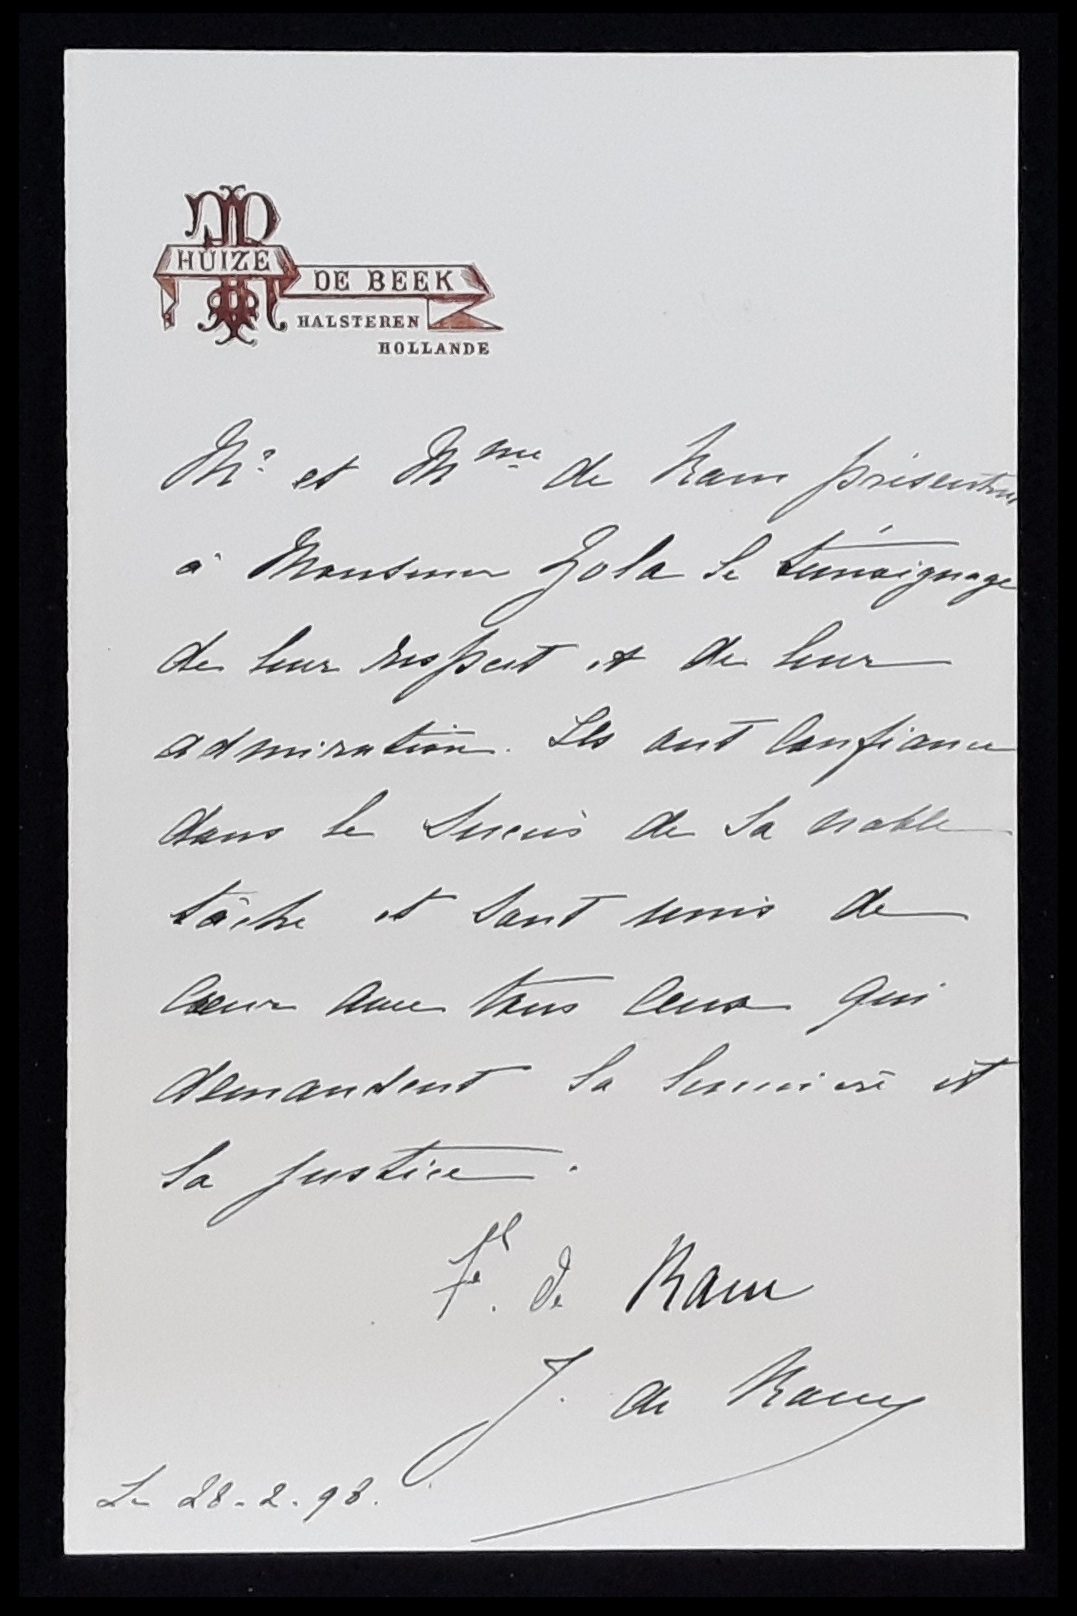 HUIZE
DE BEEK
HALSTEREN
HOLLANDE
Mr et Mme de Ram présentent
à Monsieur Zola le témoignage
de leur respect et de leur
admiration. Ils ont confiance
dans le succès de sa noble
tâche et sont unis de
cœur avec tous ceux qui
demandent la lumière et
la justice.
de Ram
J. de Ram
Le 28-2-98.